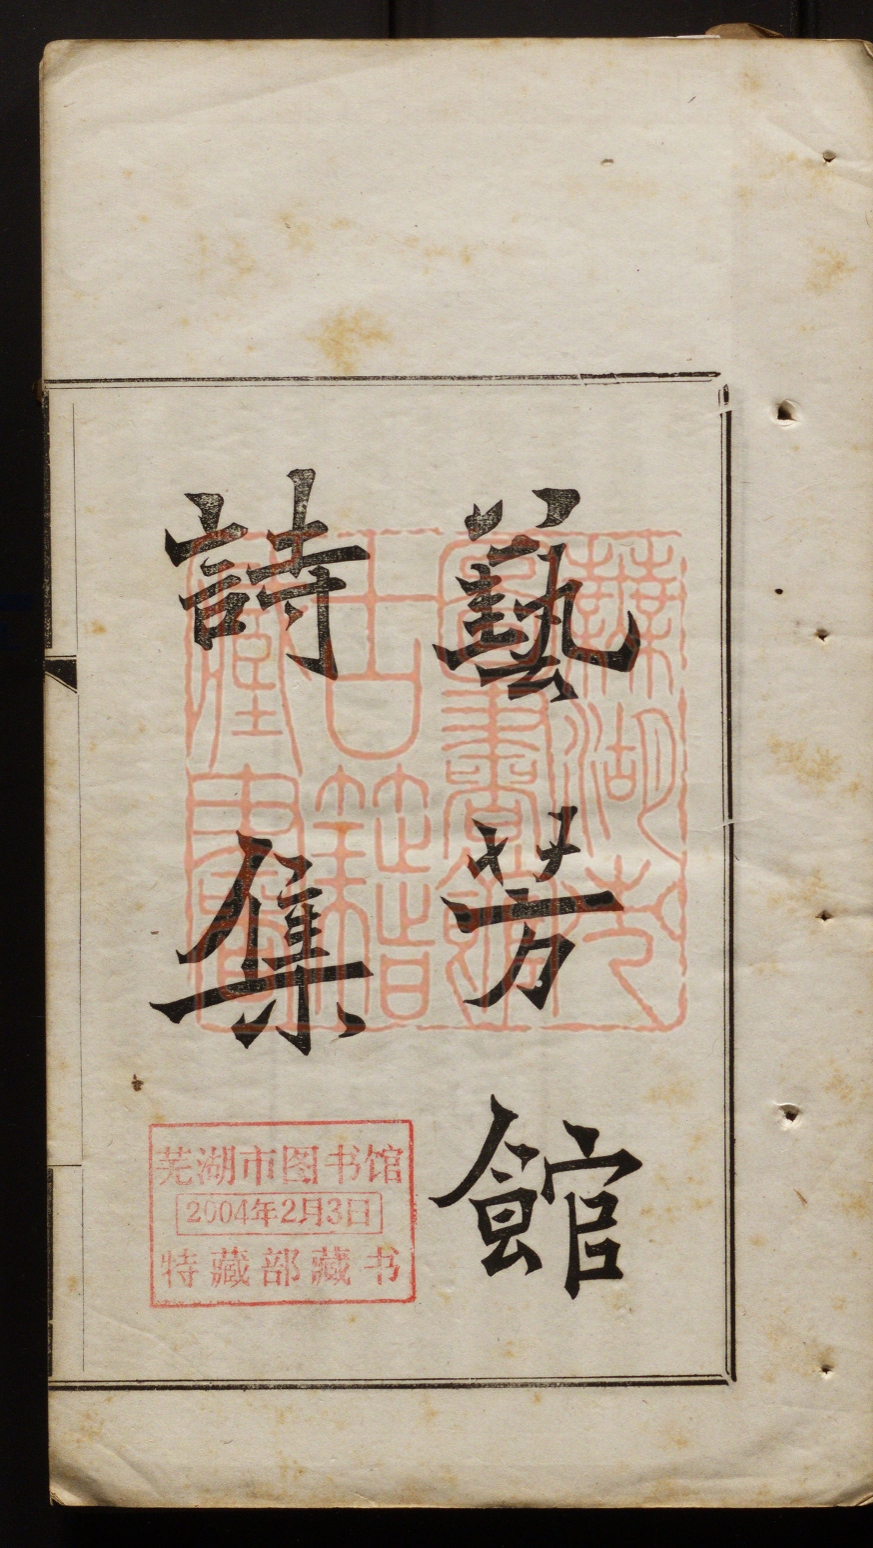 藝芳館
詩集
蕪湖市
圖書館
古籍
藏書
芜湖市图书馆
2004年2月3日
特藏部藏书